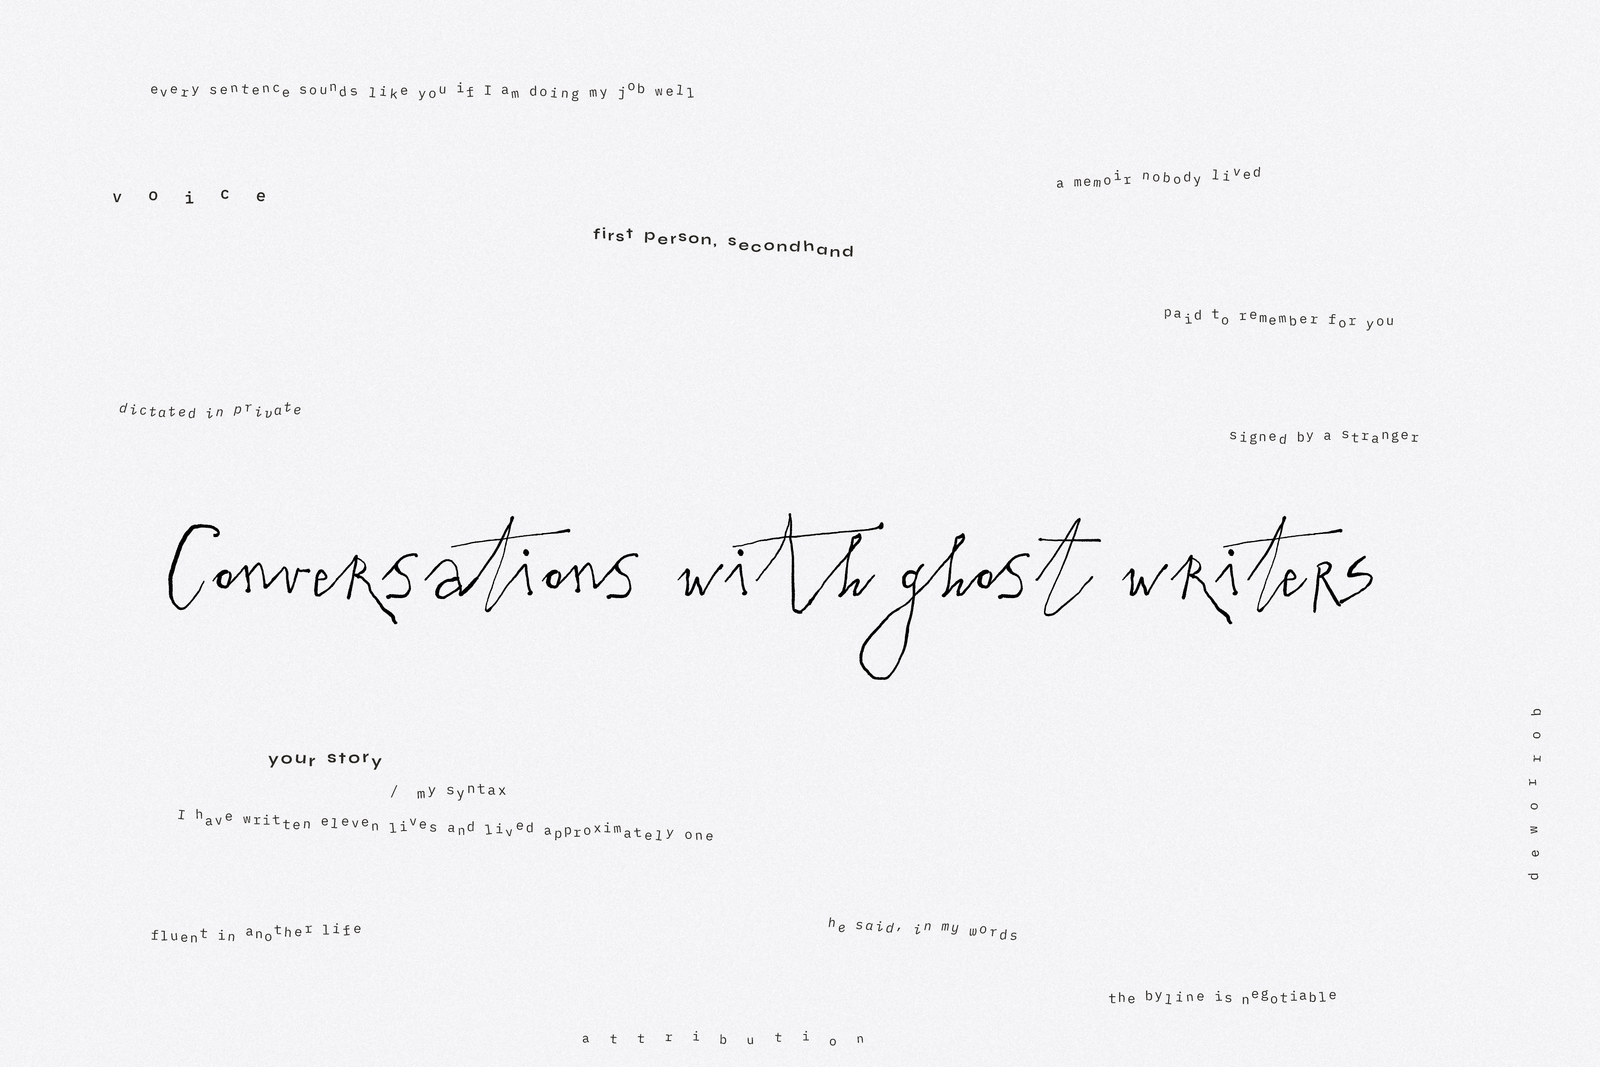 every sentence sounds like you if I am doing my job well
a memoir nobody lived
voice
first person, secondhand
paid to remember for you
dictated in private
signed by a stranger
Conversations with ghost writers
borrowed
your story
/ my syntax
I have written eleven lives and lived approximately one
fluent in another life
he said, in my words
the byline is negotiable
attribution